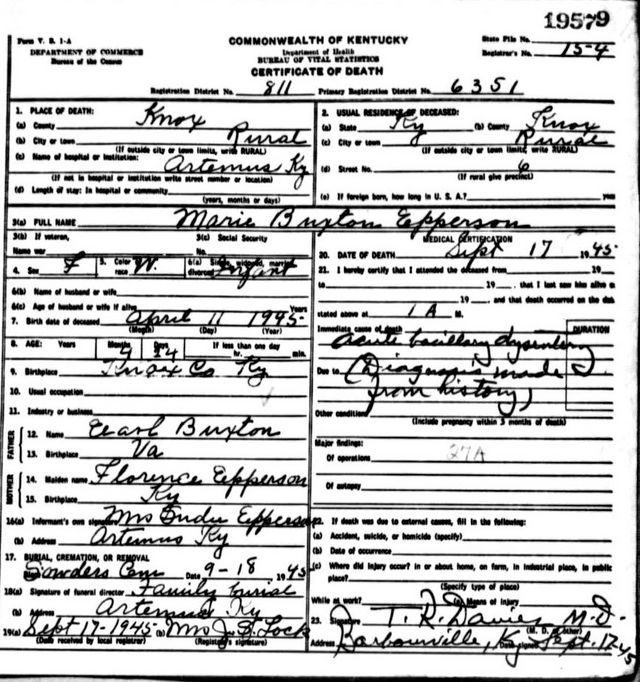 19579
Form V. S. 1-A
DEPARTMENT OF COMMERCE
Bureau of the Census
COMMONWEALTH OF KENTUCKY
Department of Health
BUREAU OF VITAL STATISTICS
CERTIFICATE OF DEATH
State File No.
Registrar's No. 15-4
Registration District No. 811 Primary Registration District No. 6351
1. PLACE OF DEATH:
(a) County Knox
(b) City or town Rural
(If outside city or town limits, write RURAL)
(c) Name of hospital or institution: Artemus Ky
(If not in hospital or institution write street number or location)
(d) Length of stay: In hospital or community
(years, months or days)
2. USUAL RESIDENCE OF DECEASED:
(a) State Ky (b) County Knox
(c) City or town Rural
(If outside city or town limits, write RURAL)
(d) Street No. 6
(If rural give precinct)
(e) If foreign born, how long in U. S. A.?
3(a) FULL NAME Marie Buxton Epperson
3(b) If veteran,
Name war
3(c) Social Security
No.
4. Sex F 5. Color race W. 6(a) Single, widowed, married, divorced Infant
6(b) Name of husband or wife
6(c) Age of husband or wife if alive Years
7. Birth date of deceased April 11 1945
(Month) (Day) (Year)
8. AGE: Years Months Days If less than one day
hr. min.
9. Birthplace Knox Co Ky
10. Usual occupation
11. Industry or business
FATHER
12. Name Earl Buxton
13. Birthplace Va
MOTHER
14. Maiden name Florence Epperson
15. Birthplace Ky
16(a) Informant's own signature Mrs Epperson
(b) Address Artemus Ky
17. BURIAL, CREMATION, OR REMOVAL
Sowders Cem Date 9-18 1945
18(a) Signature of funeral director Family burial
(b) Address Artemus Ky
19(a) Sept 17-1945 (b) Mrs J. Lock
(Date received by local registrar) (Registrar's signature)
MEDICAL CERTIFICATION
20. DATE OF DEATH Sept 17 1945
21. I hereby certify that I attended the deceased from 19
to 19 , that I last saw him alive on
19 , and that death occurred on the date
stated above at 1 A M.
Immediate cause of death DURATION
Acute bacillary dysentery
Due to (Diagnosis made
from history)
Other conditions
(Include pregnancy within 3 months of death)
Major findings: 27A
Of operations
Of autopsy
22. If death was due to external causes, fill in the following:
(a) Accident, suicide, or homicide (specify)
(b) Date of occurrence
(c) Where did injury occur? in or about home, on farm, in industrial place, in public
place?
(Specify type of place)
While at work? (e) Means of injury
23. Signature T. R. Davies M.D.
(M. D. or other)
Address Barbourville, Ky Date signed Sept. 17-45